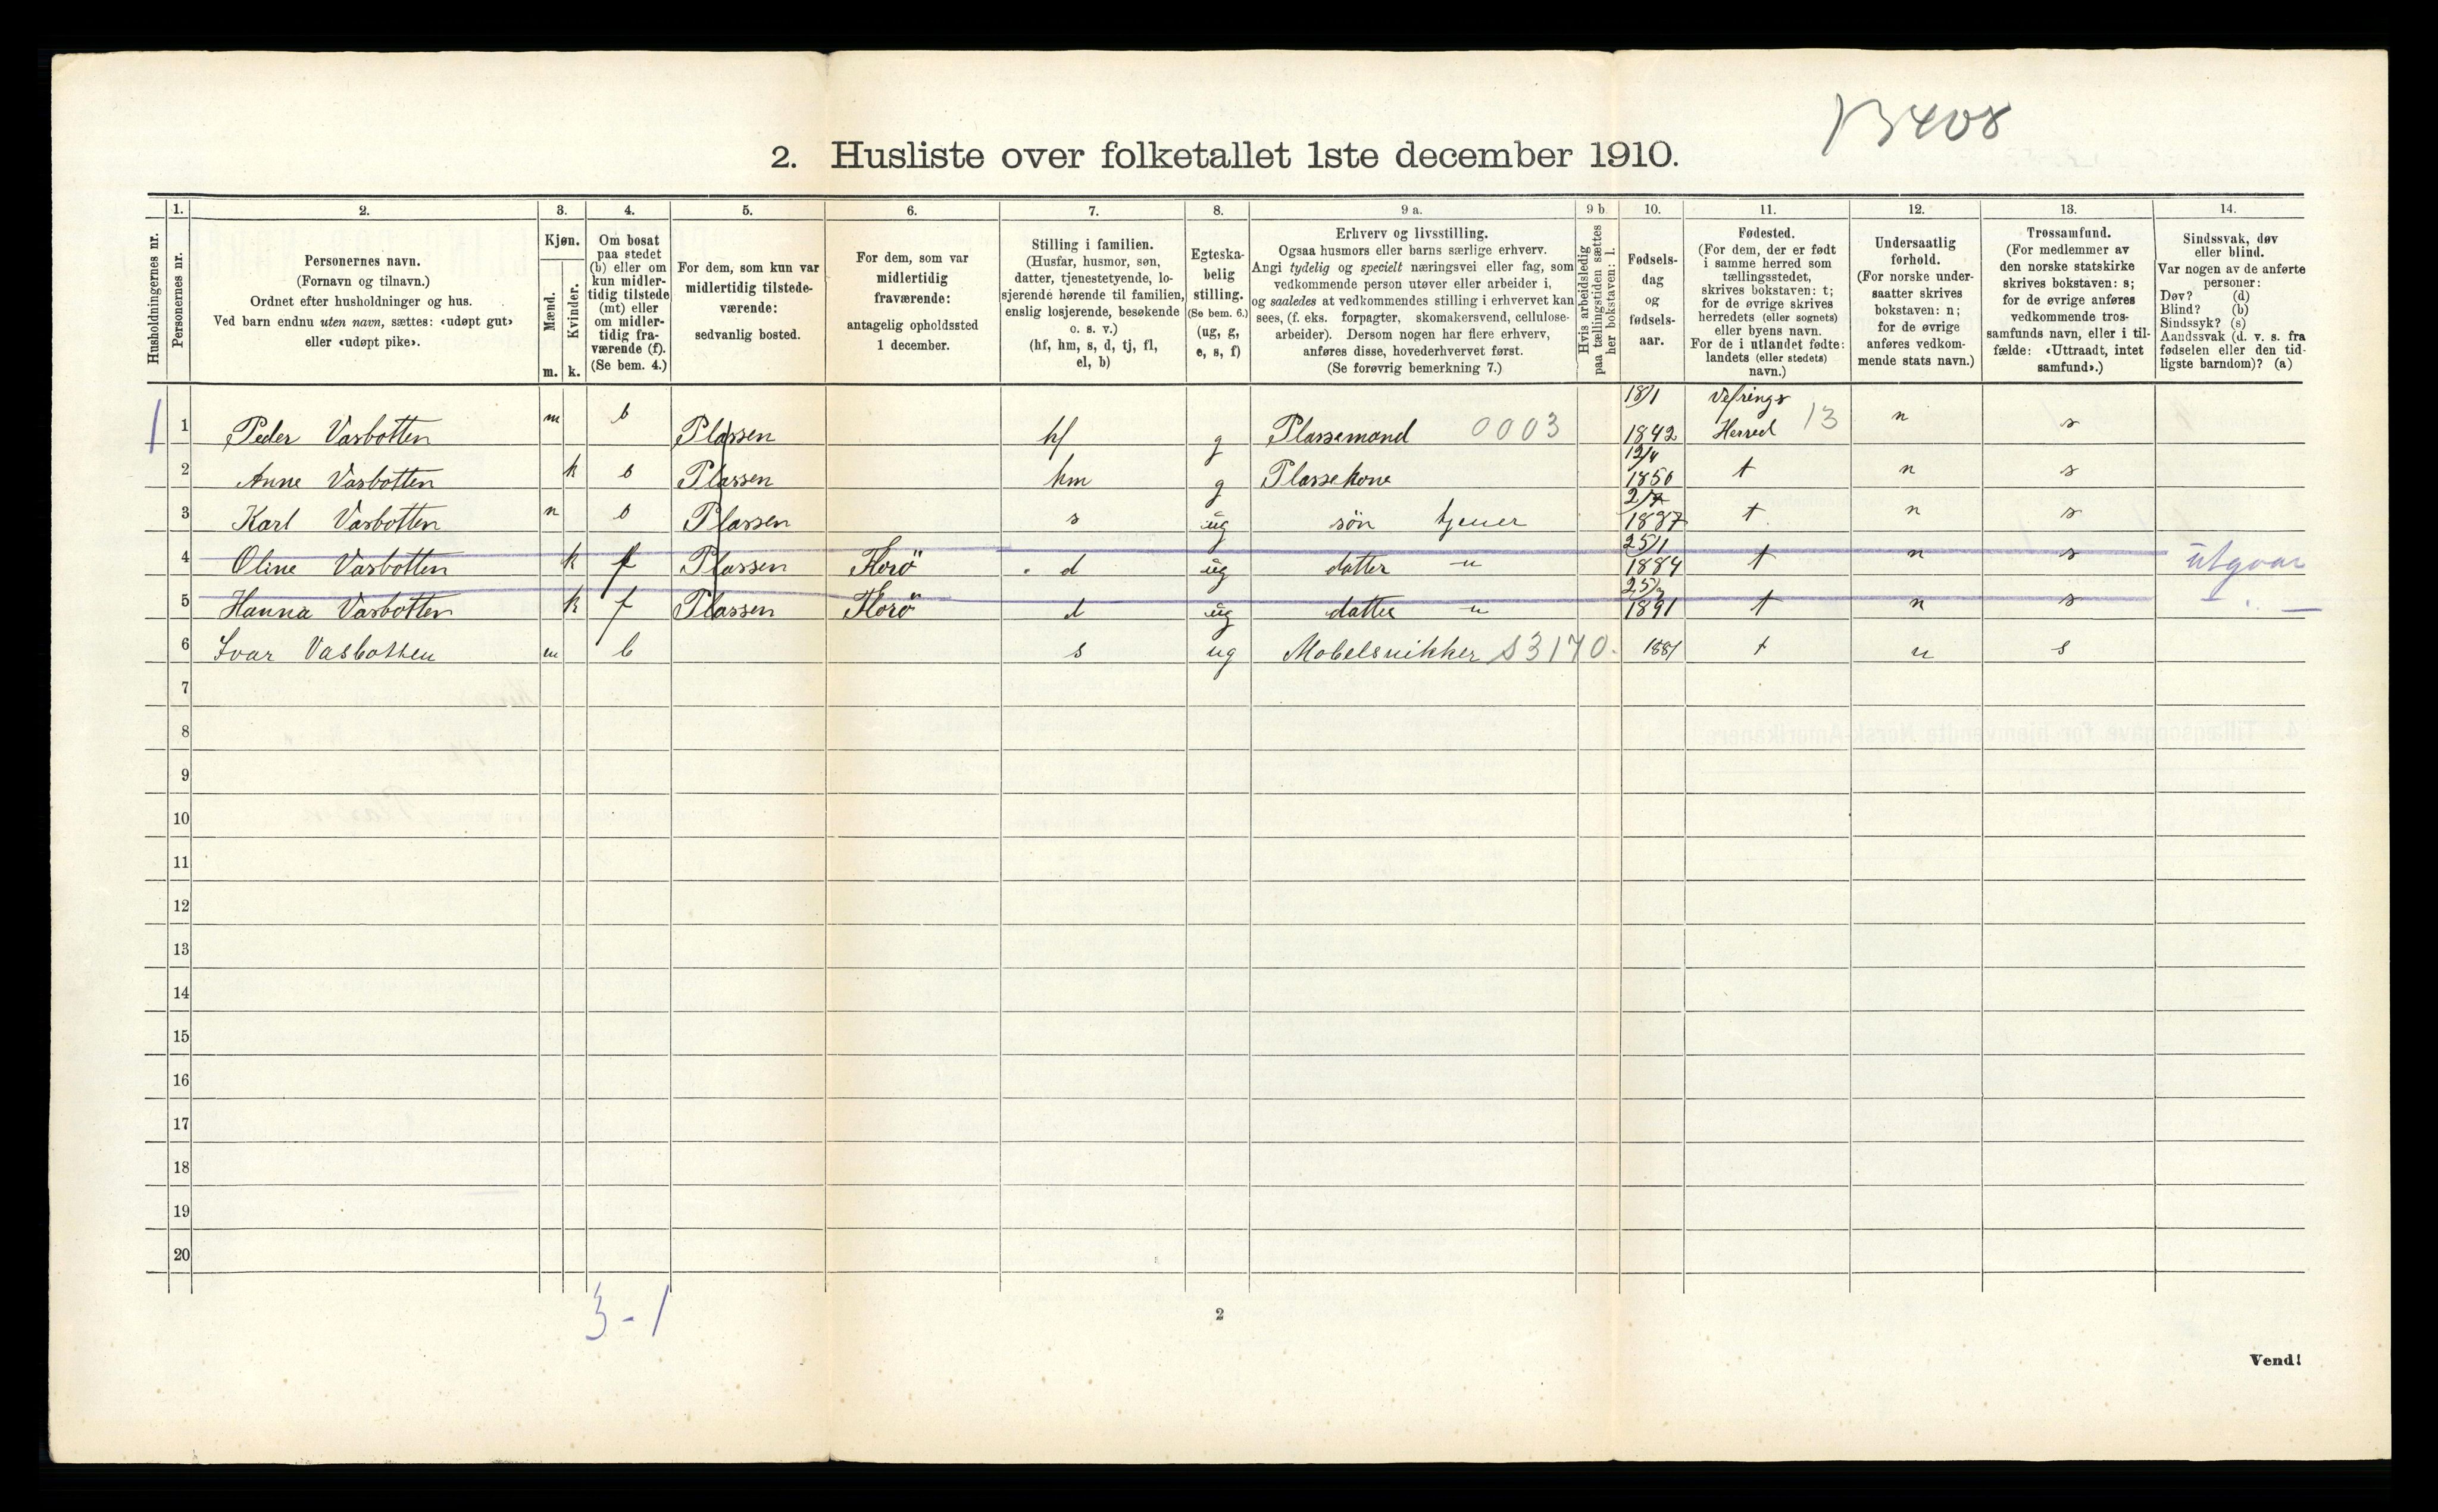 B408
2. Husliste over folketallet 1ste december 1910.
Husholdningernes nr.
1. Personernes nr.
2. Personernes navn.
(Fornavn og tilnavn.)
Ordnet efter husholdninger og hus.
Ved barn endnu uten navn, sættes: «udøpt gut»
eller «udøpt pike».
3. Kjøn.
Mænd. m.
Kvinder. k.
4. Om bosat
paa stedet
(b) eller om
kun midler-
tidig tilstede
(mt) eller
om midler-
tidig fra-
værende (f).
(Se bem. 4.)
5. For dem, som kun var
midlertidig tilstede-
værende:
sedvanlig bosted.
6. For dem, som var
midlertidig
fraværende:
antagelig opholdssted
1 december.
7. Stilling i familien.
(Husfar, husmor, søn,
datter, tjenestetyende, lo-
sjerende hørende til familien,
enslig losjerende, besøkende
o. s. v.)
(hf, hm, s, d, tj, fl,
el, b)
8. Egteska-
belig
stilling.
(Se bem. 6.)
(ug, g,
e, s, f)
9 a. Erhverv og livsstilling.
Ogsaa husmors eller barns særlige erhverv.
Angi tydelig og specielt næringsvei eller fag, som
vedkommende person utøver eller arbeider i,
og saaledes at vedkommendes stilling i erhvervet kan
sees, (f. eks. forpagter, skomakersvend, cellulose-
arbeider). Dersom nogen har flere erhverv,
anføres disse, hovederhvervet først.
(Se forøvrig bemerkning 7.)
9 b Hvis arbeidsledig
paa tællingstiden sættes
her bokstaven: l.
10. Fødsels-
dag
og
fødsels-
aar.
11. Fødested.
(For dem, der er født
i samme herred som
tællingsstedet,
skrives bokstaven: t;
for de øvrige skrives
herredets (eller sognets)
eller byens navn.
For de i utlandet fødte:
landets (eller stedets)
navn.)
12. Undersaatlig
forhold.
(For norske under-
saatter skrives
bokstaven: n;
for de øvrige
anføres vedkom-
mende stats navn.)
13. Trossamfund.
(For medlemmer av
den norske statskirke
skrives bokstaven: s;
for de øvrige anføres
vedkommende tros-
samfunds navn, eller i til-
fælde: «Uttraadt, intet
samfund».)
14. Sindssvak, døv
eller blind.
Var nogen av de anførte
personer:
Døv? (d)
Blind? (b)
Sindssyk? (s)
Aandssvak (d. v. s. fra
fødselen eller den tid-
ligste barndom)? (a)
1 1 Peder Vasbotten m b Plassen hf g Plassemand 0003 18/1 1842 Vefrings Herred 13 n s
2 Anne Vasbotten k b Plassen hm g Plassekone 12/4 1850 t n s
3 Karl Vasbotten m b Plassen s ug søn tjener 1887 t n s
4 Oline Vasbotten k f Plassen Florö d ug datter -u- 25/1 1884 t n s utgaar
5 Hanna Vasbotten k f Plassen Florö d ug datter -u- 1891 t n s — " —
6 Ivar Vasbotten m b s ug Møbelsnikker S3170. 1881 t n s
7
8
9
10
11
12
13
14
15
16
17
18
19
20
3 - 1
2
Vend!